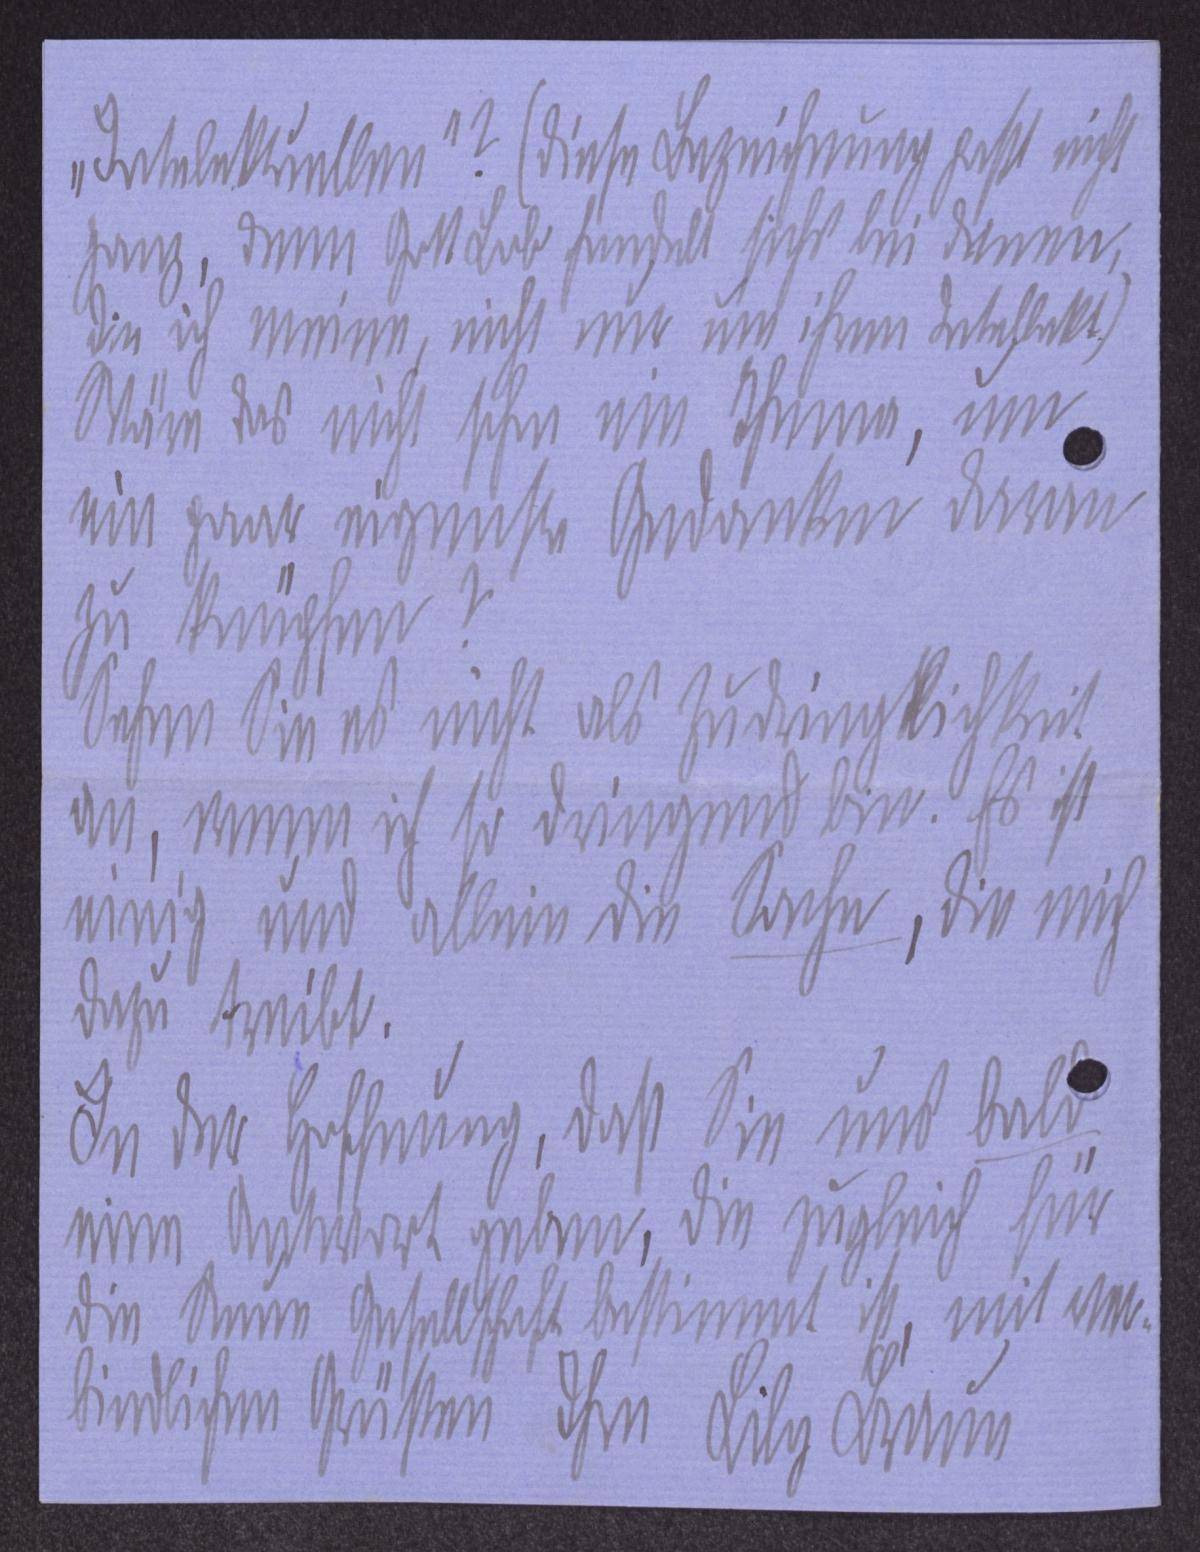 „Intelektuellen"? (diese Bezeichnung passt nicht
ganz, denn Gott Lob handelt sichs bei denen,
die ich meine, nicht nur um ihren Intellekt)
Wäre das nicht schon ein Thema, um
ein paar eigenste Gedanken daran
zu knüpfen?
Sehen Sie es nicht als Zudringlichkeit
an, wenn ich so dringend bin. Es ist
einzig und allein die Sache, die mich
dazu treibt.
In der Hoffnung, dass Sie uns bald
eine Antwort geben, die zugleich für
die Neue Gesellschaft bestimmt ist, mit ver-
bindlichen Grüssen Ihre Lily Braun